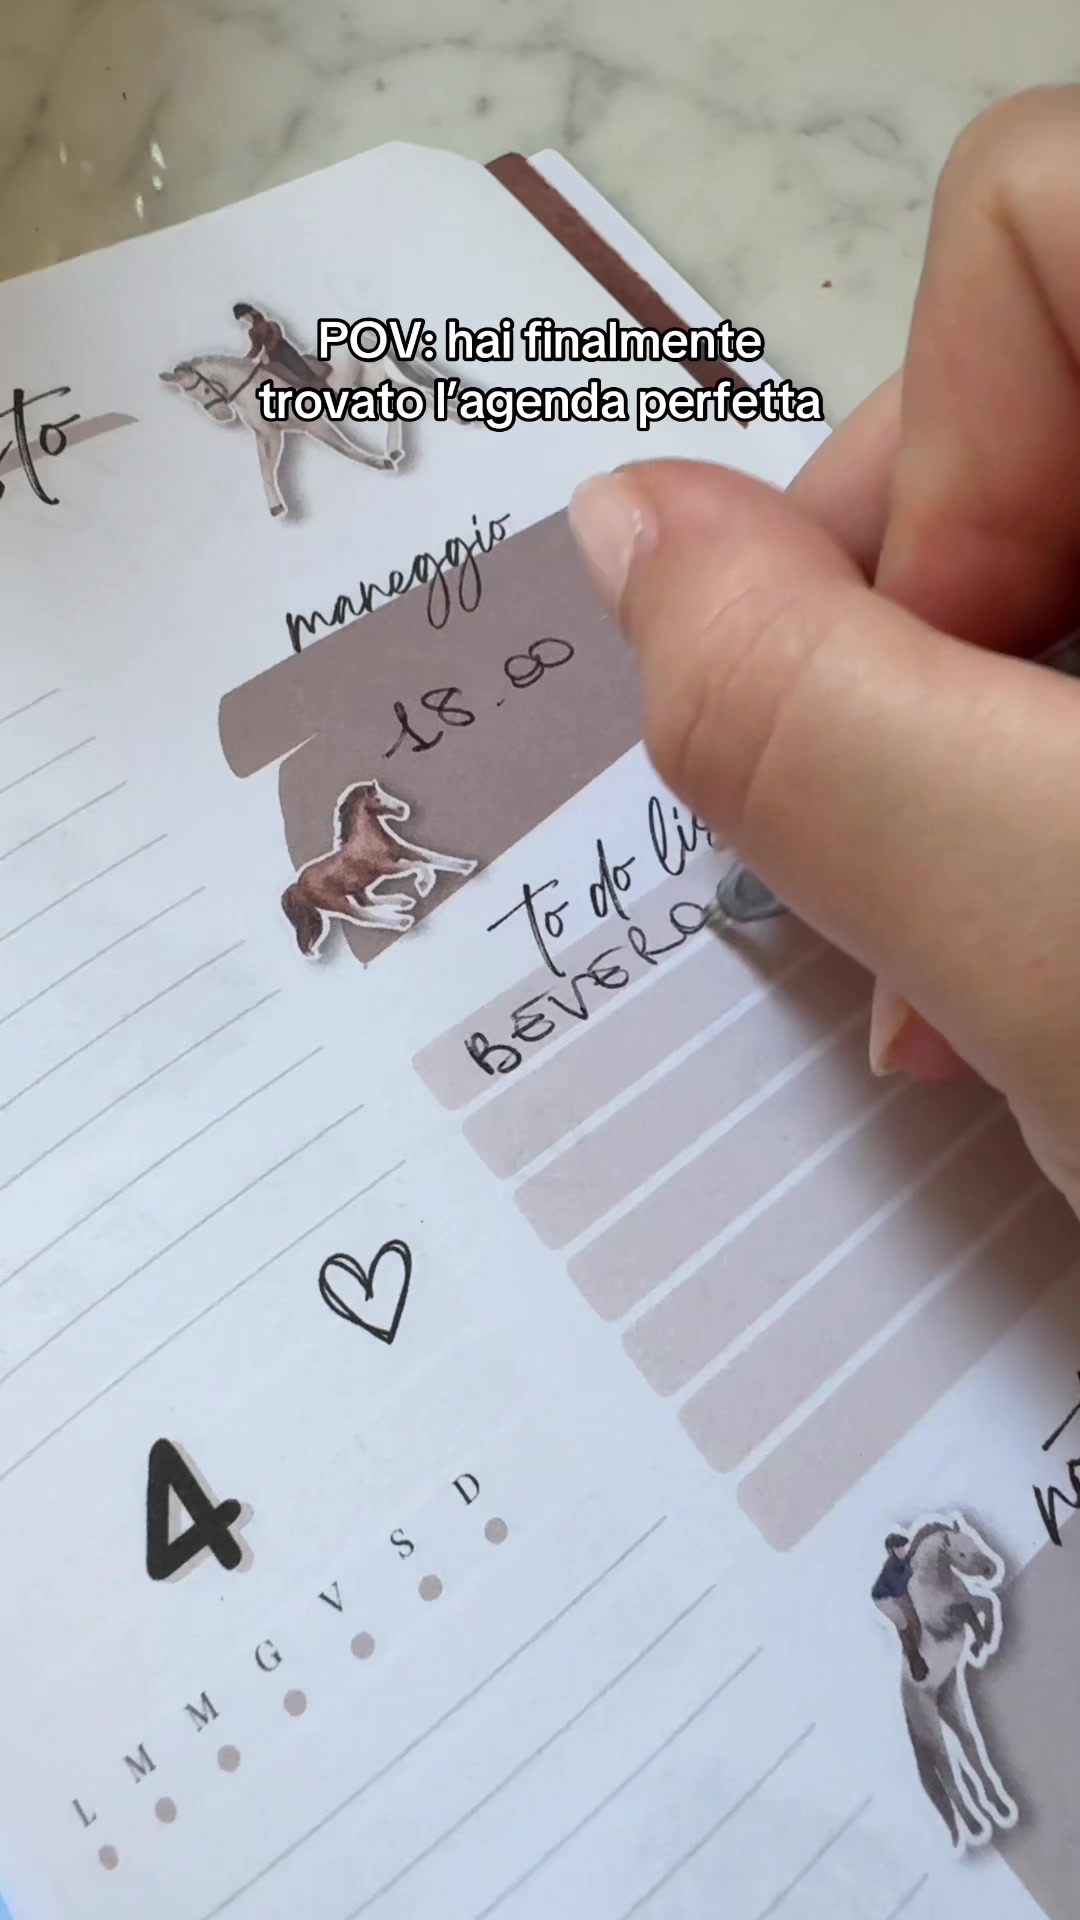 POV: hai finalmente
trovato l'agenda perfetta
maneggio
18.00
to do
BEVERO
4
L M M G V S D